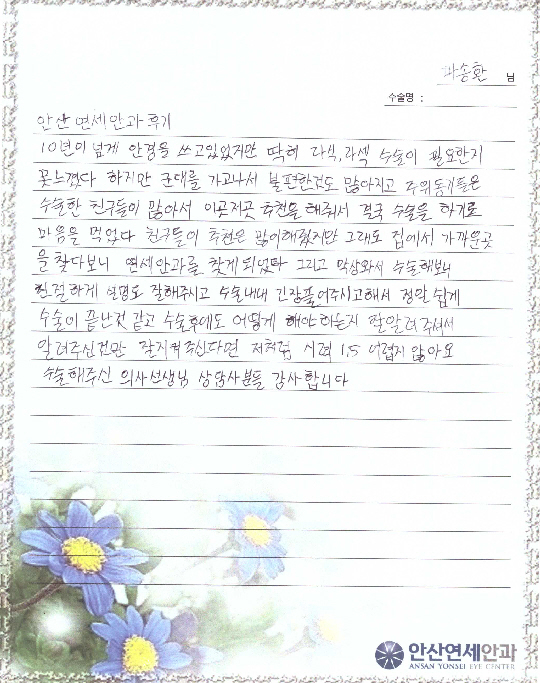 박송환 님
수술명 :
안산연세안과 후기
10년이 넘게 안경을 쓰고있었지만 딱히 라식,라섹 수술이 필요한지
못느꼈다 하지만 군대를 가고나서 불편한것도 많아지고 주위동기들은
수술한 친구들이 많아서 이곳저곳 추천을 해줘서 결국 수술을 하기로
마음을 먹었다 친구들의 추천은 많이해줬지만 그래도 집에서 가까운곳
을 찾다보니 연세안과를 찾게 되었다 그리고 막상와서 수술해보니
친절하게 설명도 잘해주시고 수술내내 긴장풀어주시고해서 정말 쉽게
수술이 끝난것 같고 수술후에도 어떻게 해야하는지 잘알려주셔서
알려주신것만 잘지켜주신다면 저처럼 시력 1.5 어렵지 않아요
수술해주신 의사선생님 상담사분들 감사합니다
안산연세안과
ANSAN YONSEI EYE CENTER